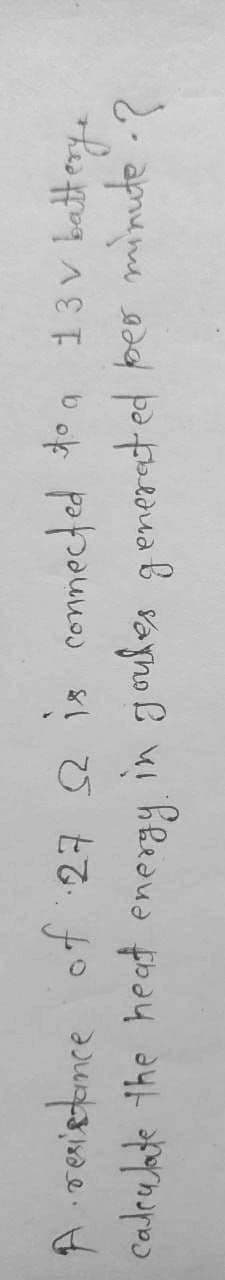 A resistance of 27 Ω is connected to a 13 v battery.
calculate the heat energy in Joules generated per minute.?